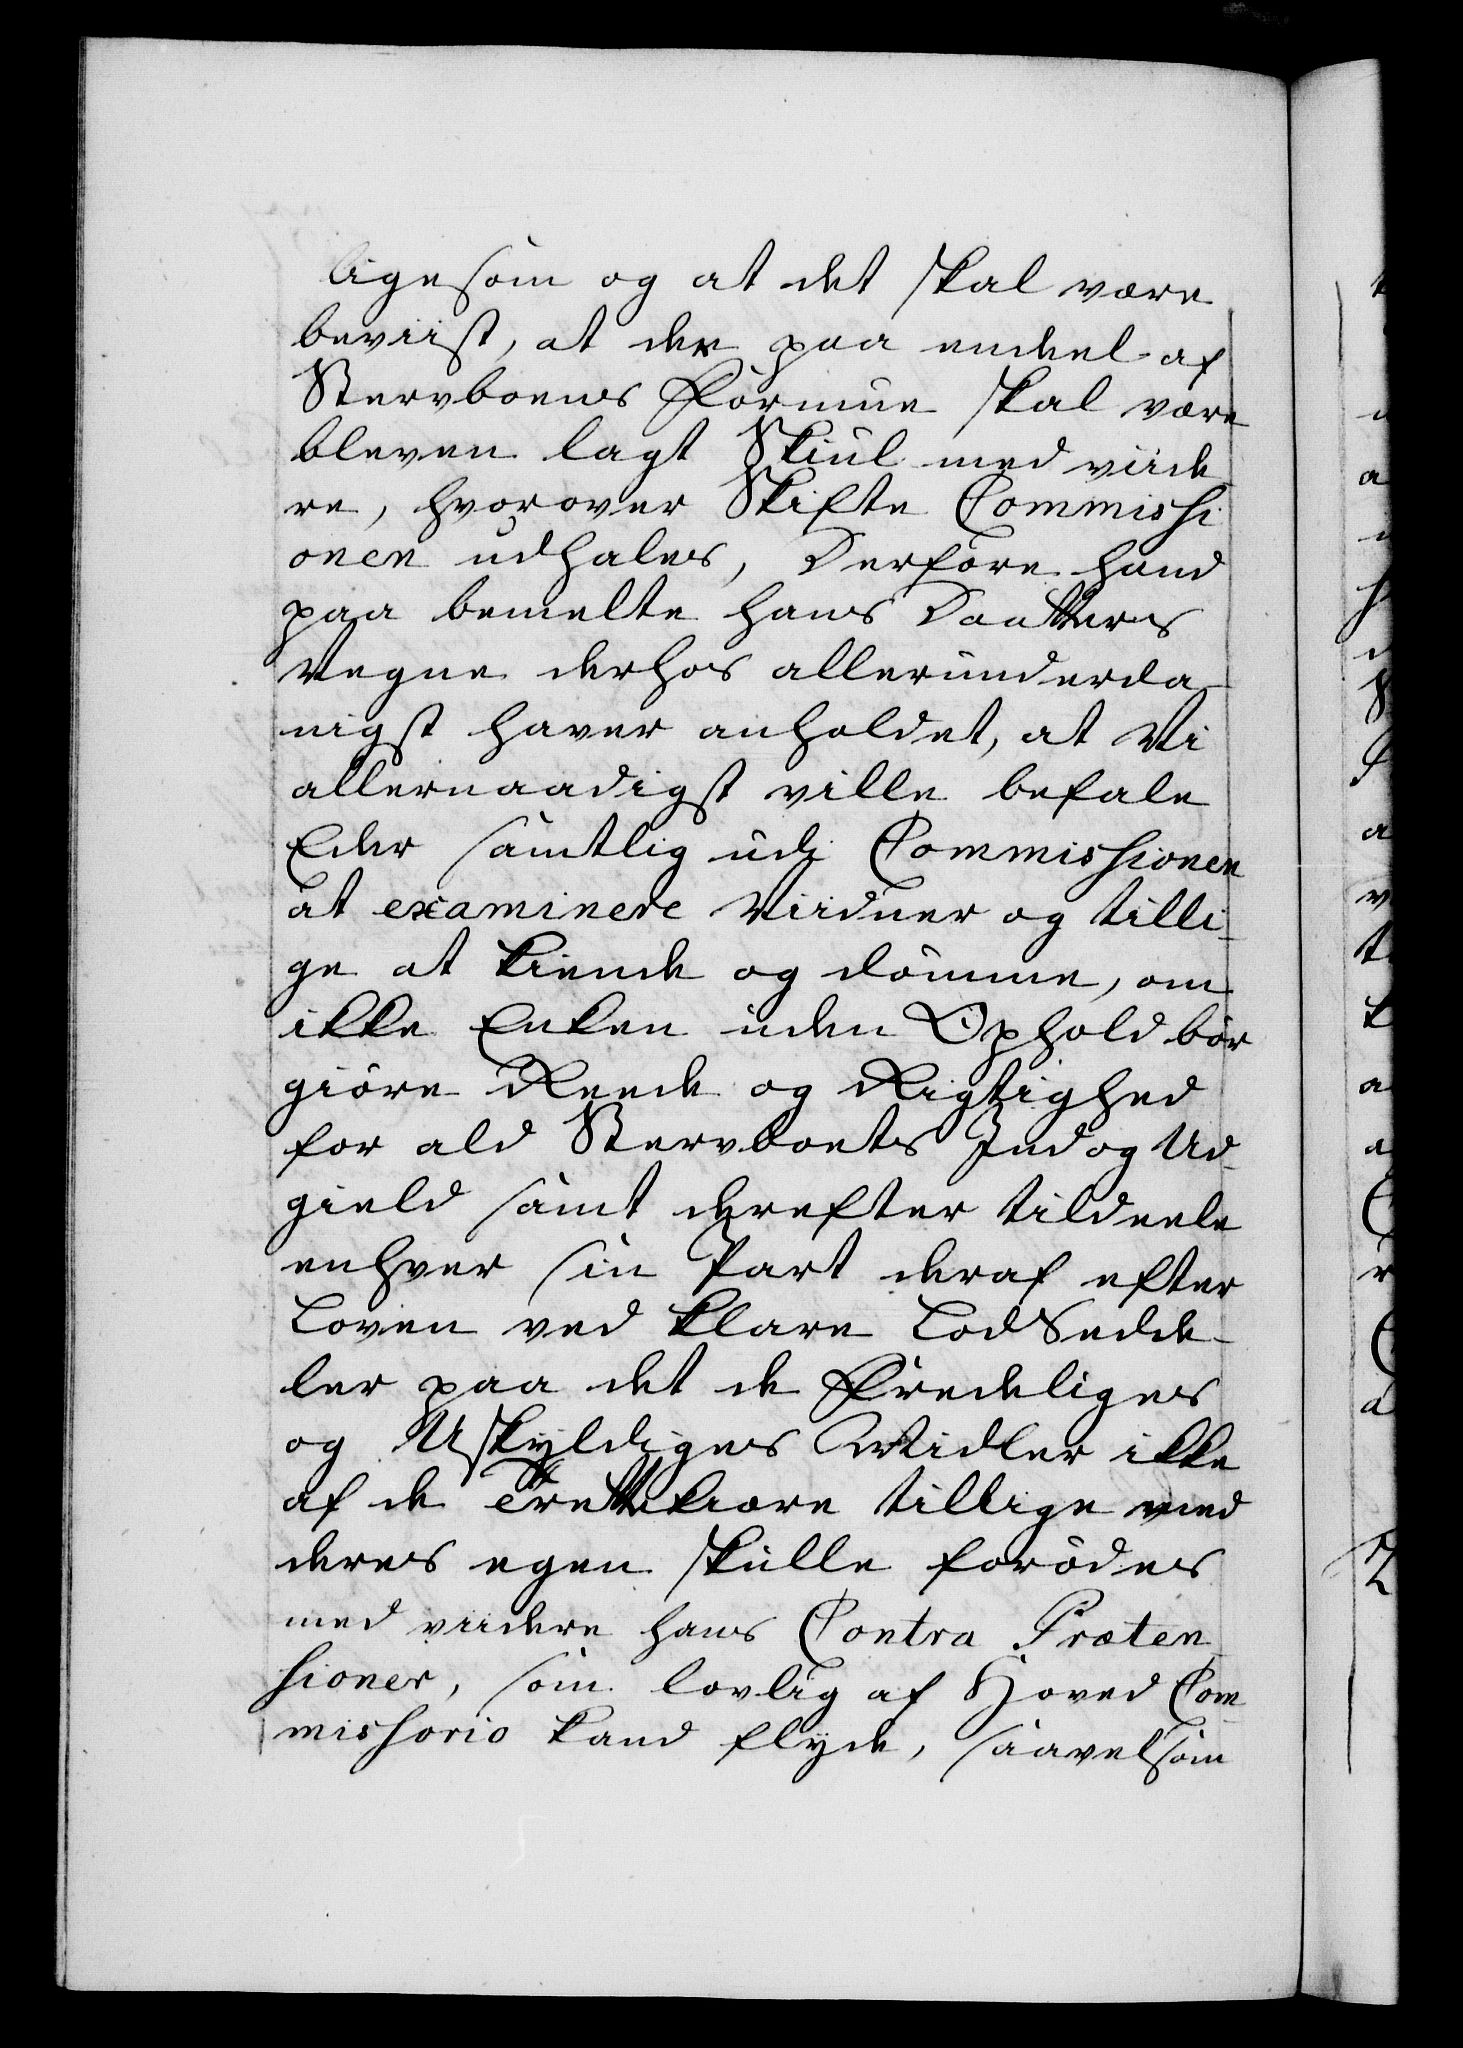 ligesom og at det skal være
beviist, at der paa endeel af
Stervboens Formue skal være
bleven lagt Skiul med viide
re, hvorover Skifte Commissi
onen udhales, Derfore hand
paa bemelte hans Daatters
Vegne derhos allerunderda-
nigst haver anholdet, at Vi
allernaadigst ville befale
Eder samtlig udi Commissionen
at examinere Viidner og tilli-
ge at kiende og dømme, om
ikke Enken uden Ophold bør
giøre Reede og Rigtighed
for ald Stervboets Ind og Ud-
gield samt derefter tildeele
enhver sin Part deraf efter
Loven ved klare Lod Sedde-
ler paa det de Fredeliges
og Uskyldiges Midler ikke
af de Trettekiære tillige med
deres egen skulle forødes
med viidere hans Contra Præten
sioner, som lovlig af Hoved Com-
missorio kand flyde, saavelsom